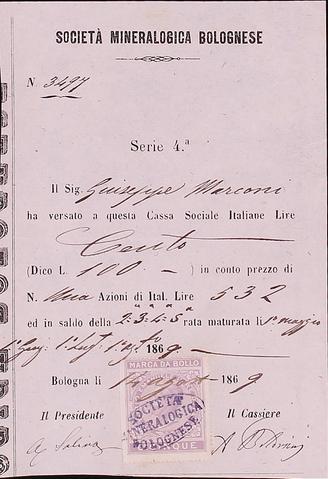 SOCIETÀ MINERALOGICA BOLOGNESE
N. 3497
Serie 4.ª
Il Sig. Giuseppe Marconi
ha versato a questa Cassa Sociale Italiane Lire
Cento
(Dico L. 100 . — ) in conto prezzo di
N. Una Azioni di Ital. Lire 532
ed in saldo della 2ª 3ª 4ª 5ª rata maturata li 1º maggio
1º 1º 1869
MARCA DA BOLLO
Bologna li 14 1869
SOCIETÀ
MINERALOGICA
BOLOGNESE
Il Presidente Il Cassiere